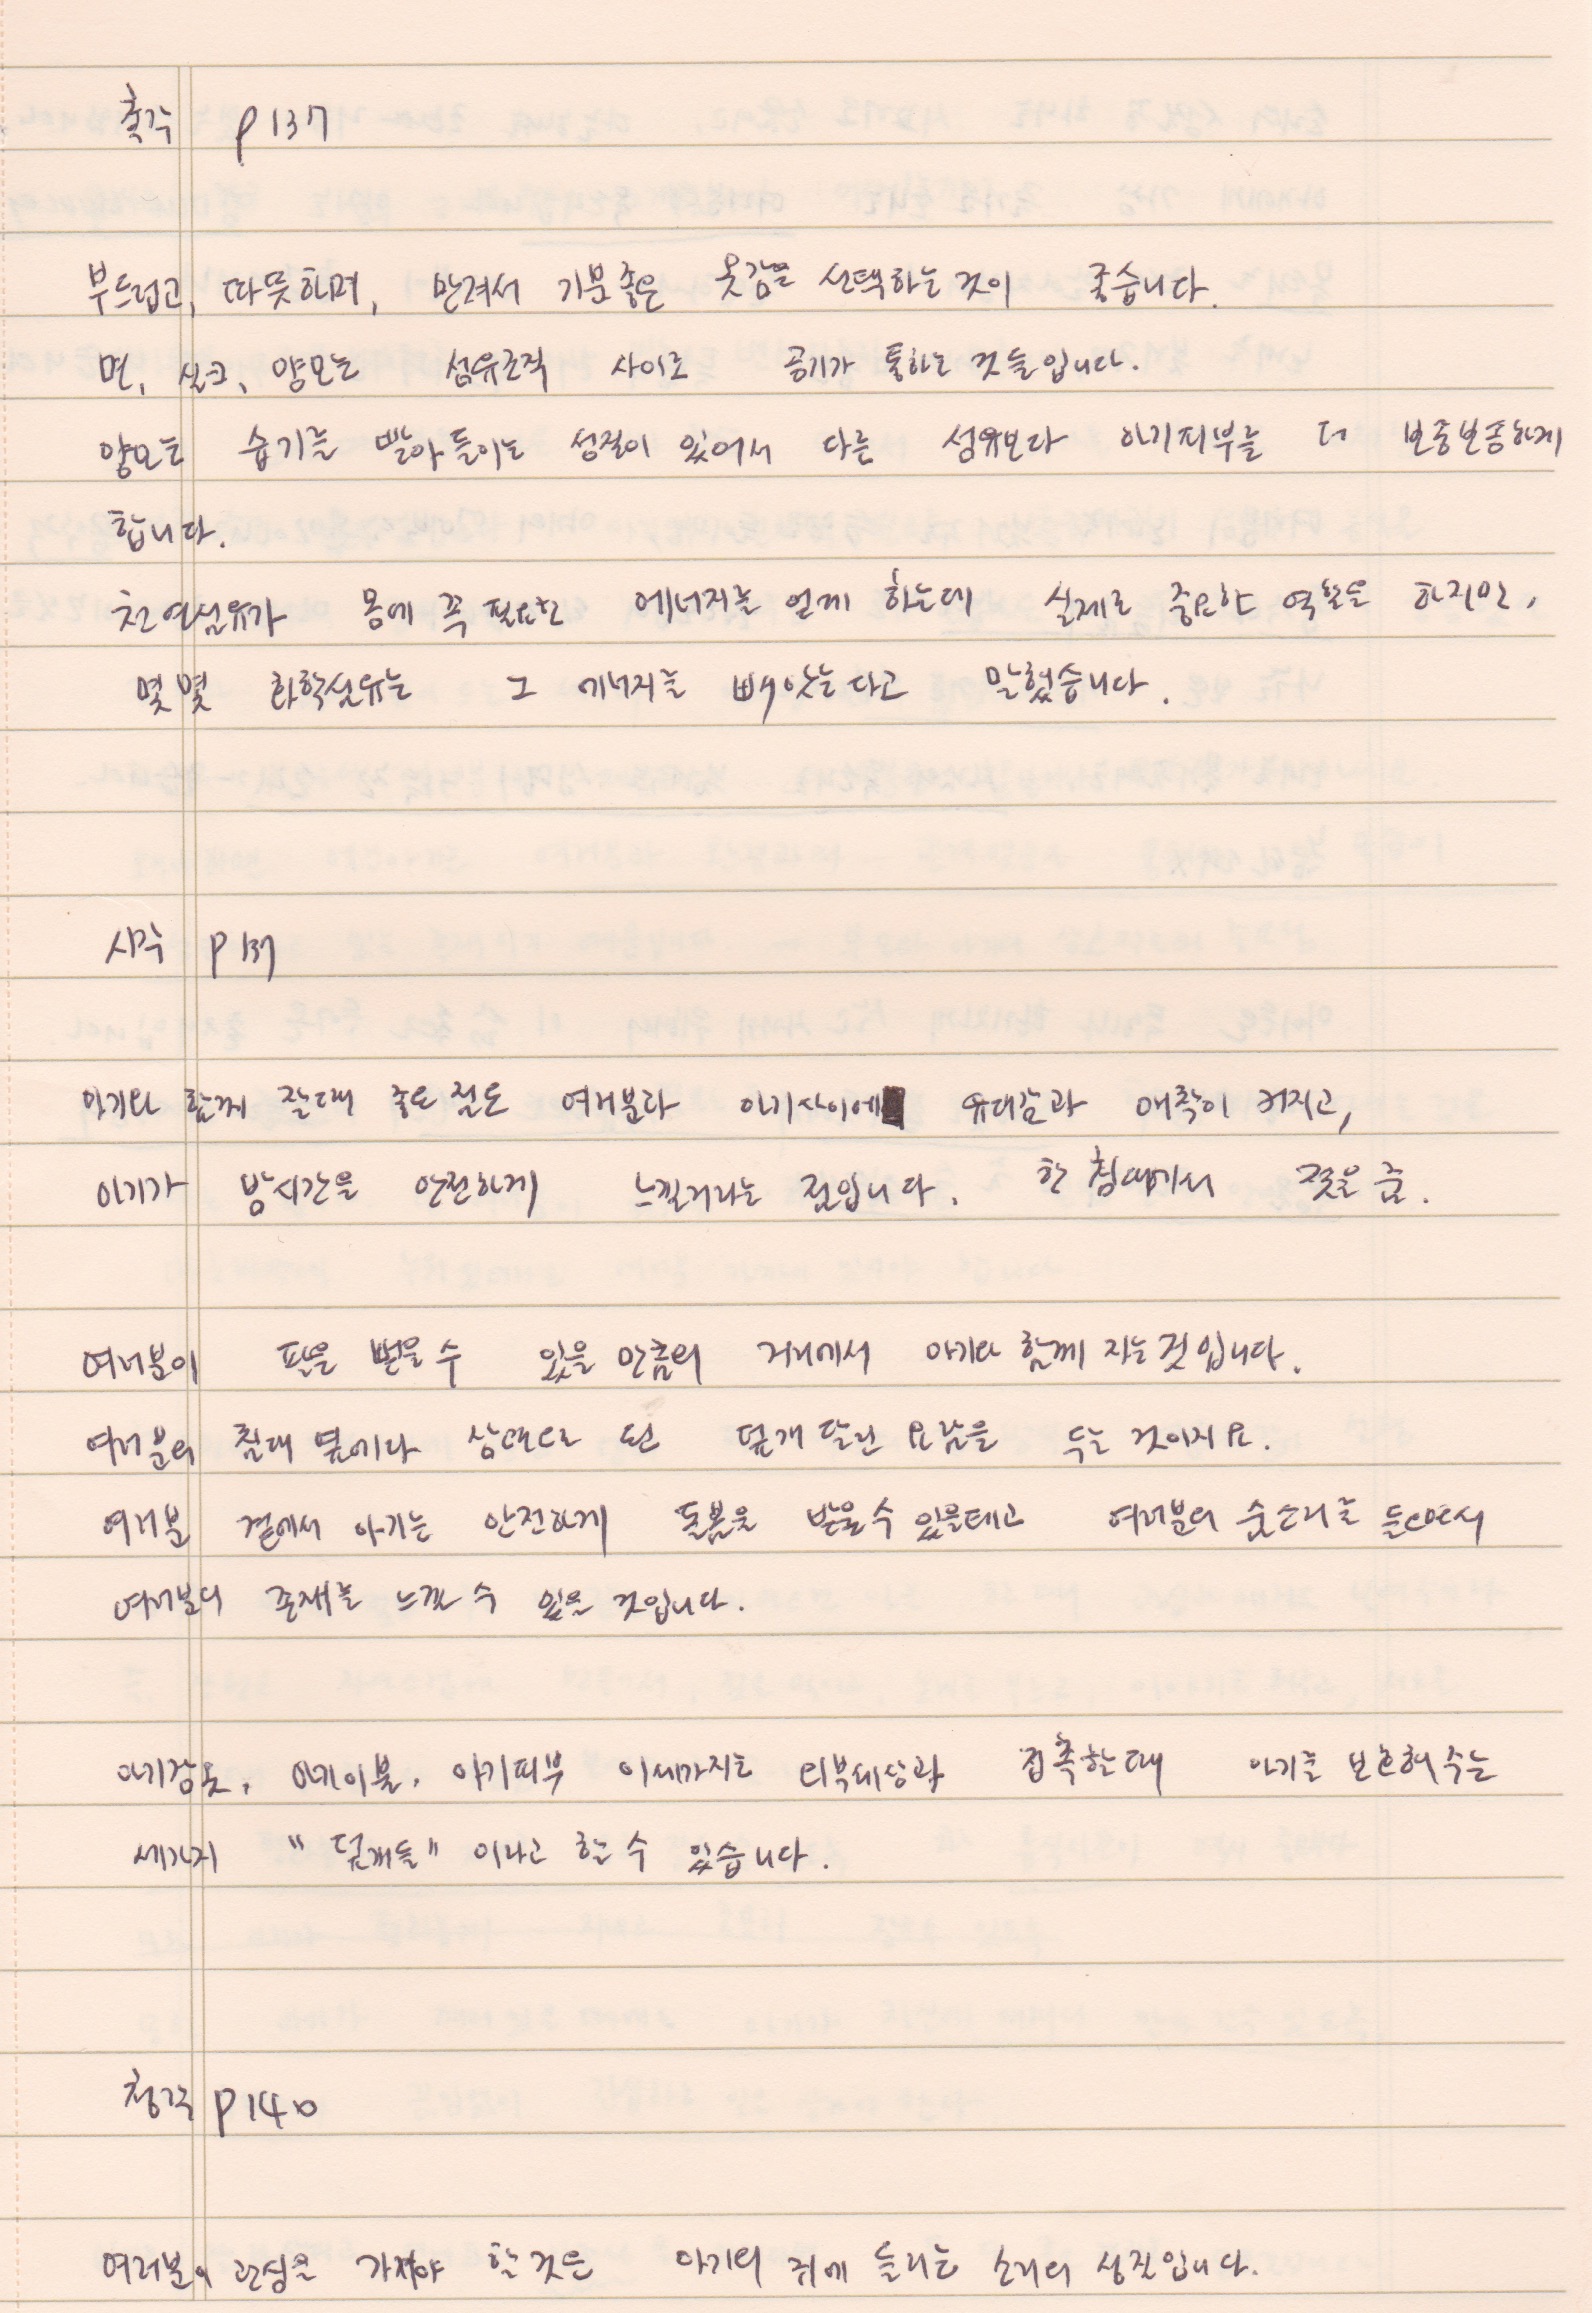 촉각 P137
부드럽고, 따뜻하며, 만져서 기분좋은 옷감을 선택하는 것이 좋습니다.
면, 실크, 양모는 섬유조직 사이로 공기가 통하는 것들입니다.
양모는 습기를 빨아들이는 성질이 있어서 다른 섬유보다 아기피부를 더 보송보송하게
합니다.
천연섬유가 몸에 꼭 필요한 에너지를 얻게 하는데 실제로 중요한 역할을 하지만,
몇몇 화학섬유는 그 에너지를 빼앗는다고 말했습니다.
시각 P137
아기와 함께 잘때 좋은 점은 여러분과 아기사이에 유대감과 애착이 커지고,
아기가 밤시간을 안전하게 느낄거라는 점입니다. 한 침대에서 젖을 줌.
여러분이 팔을 뻗을 수 있을 만큼의 거리에서 아기와 함께 자는 것입니다.
여러분의 침대 옆에다 상태로 된 덮개 달린 요람을 두는 것이지요.
여러분 곁에서 아기는 안전하게 돌봄을 받을 수 있을테고 여러분의 숨소리를 들으면서
여러분의 존재를 느낄 수 있을 것입니다.
아기잠옷, 아기이불, 아기피부 이세가지는 외부세상과 접촉할때 아기를 보호해 주는
세가지 "덮개들" 이라고 할 수 있습니다.
청각 P140
여러분이 관심을 가져야 할 것은 아기의 귀에 들리는 소리의 성질입니다.